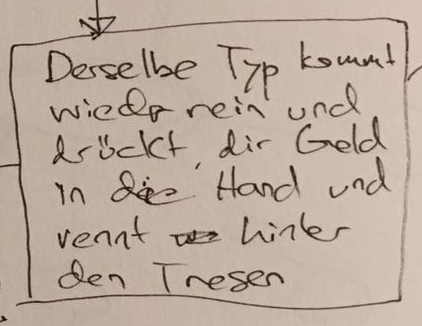 Derselbe Typ kommt
wieder rein und
drückt dir Geld
in die Hand und
rennt hinter
den Tresen